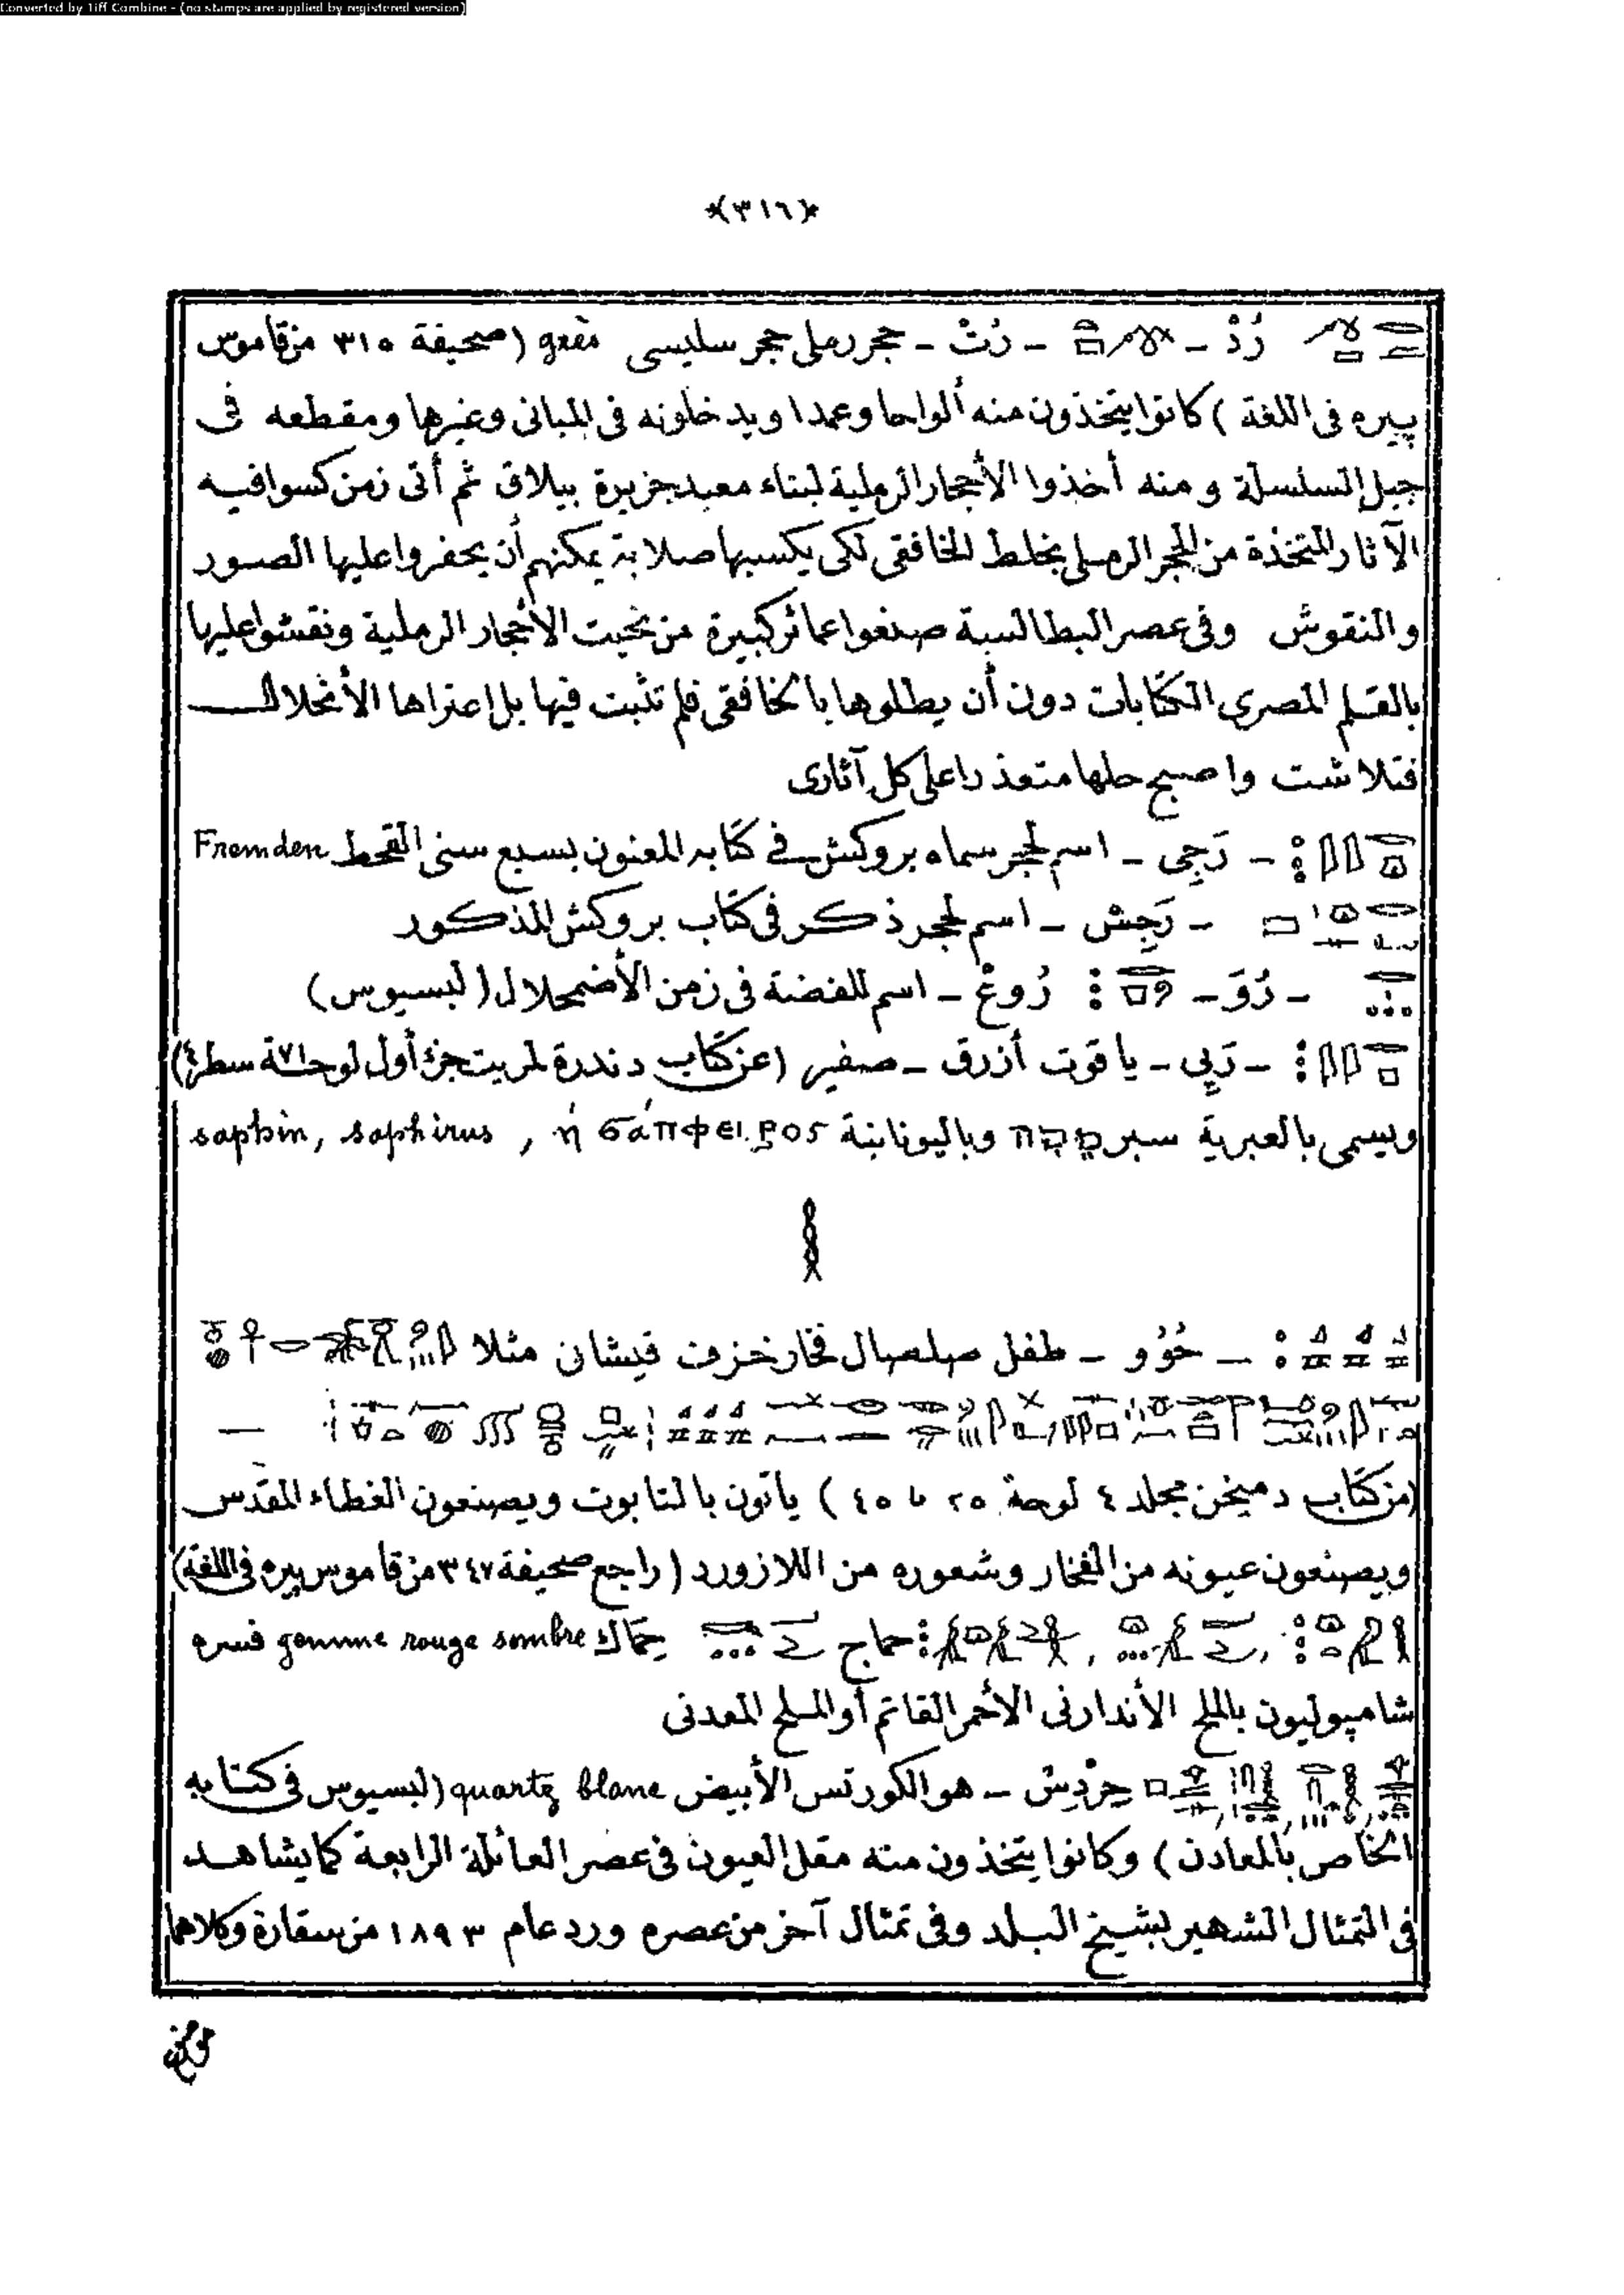 Converted by Tiff Combine - (no stamps are applied by registered version)
﴿٣١٦﴾
رُدْ - - رُتْ - حجر رملى حجر سليسى grès (صحيفة ٣١٥ من قاموس
پيره فى اللغة) كانوا يتخذون منه ألواحا وعمدا ويدخلونه فى المبانى وغيرها ومقطعه فى
جبل السلسلة ومنه أخذوا الأحجار الرملية لبناء معبد جزيرة بيلاق ثم أتى زمن كسوا فيه
الآثار المتخذة من الحجر الرملى بخلط الخافقى لكى يكسبها صلابة يمكنهم أن يحفروا عليها الصور
والنقوش وفى عصر البطالسة صنعوا عمائر كبيرة من نحيت الأحجار الرملية ونقشوا عليها
بالقلم المصرى الكتابات دون أن يطلوها بالخافقى فلم تثبت فيها بل إعتراها الأنحلال
فتلاشت واصبح حلها متعذرا على كل آثارى
- رَجِى - اسم لحجر سماه بروكش فى كتابه المعنون بسبع سنى القحط Fremden
- رَجِش - اسم لحجر ذكر فى كتاب بروكش المذكور
- رُوَ - رُوغْ - اسم للفضة فى زمن الأضمحلال (لبسيوس)
- رَپِى - ياقوت أزرق - صفير (عن كتاب دندرة لمريت جزء أول لوحة سطر)
ويسمى بالعبرية سبر وباليونانية ἡ σάπφειρος , saphirus ,saphin
- حُوُو - طفل صلصال فخار خزف قيشانى مثلا
(من كتاب دميخن مجلد ٤ لوحة ٢٥ ٤٥) يأتون بالتابوت ويصنعون الغطاء المقدس
ويصنعون عيونه من الفخار وشعوره من اللازورد (راجع صحيفة ٣٤٧ من قاموس پيره فى اللغة)
حماج حِمَاك gomme rouge sombre فسره
شامپوليون بالملح الأندارنى الأحمر القاتم أو الملح المعدنى
حِرْدِش - هو الكورتس الأبيض quartz blanc (لبسيوس فى كتابه
الخاص بالمعادن) وكانوا يتخذون منه مقل العيون فى عصر العائلة الرابعة كما يشاهد
فى التمثال الشهير بشيخ البلد وفى تمثال آخر من عصره ورد عام ١٨٩٣ من سقارة وكلاهما